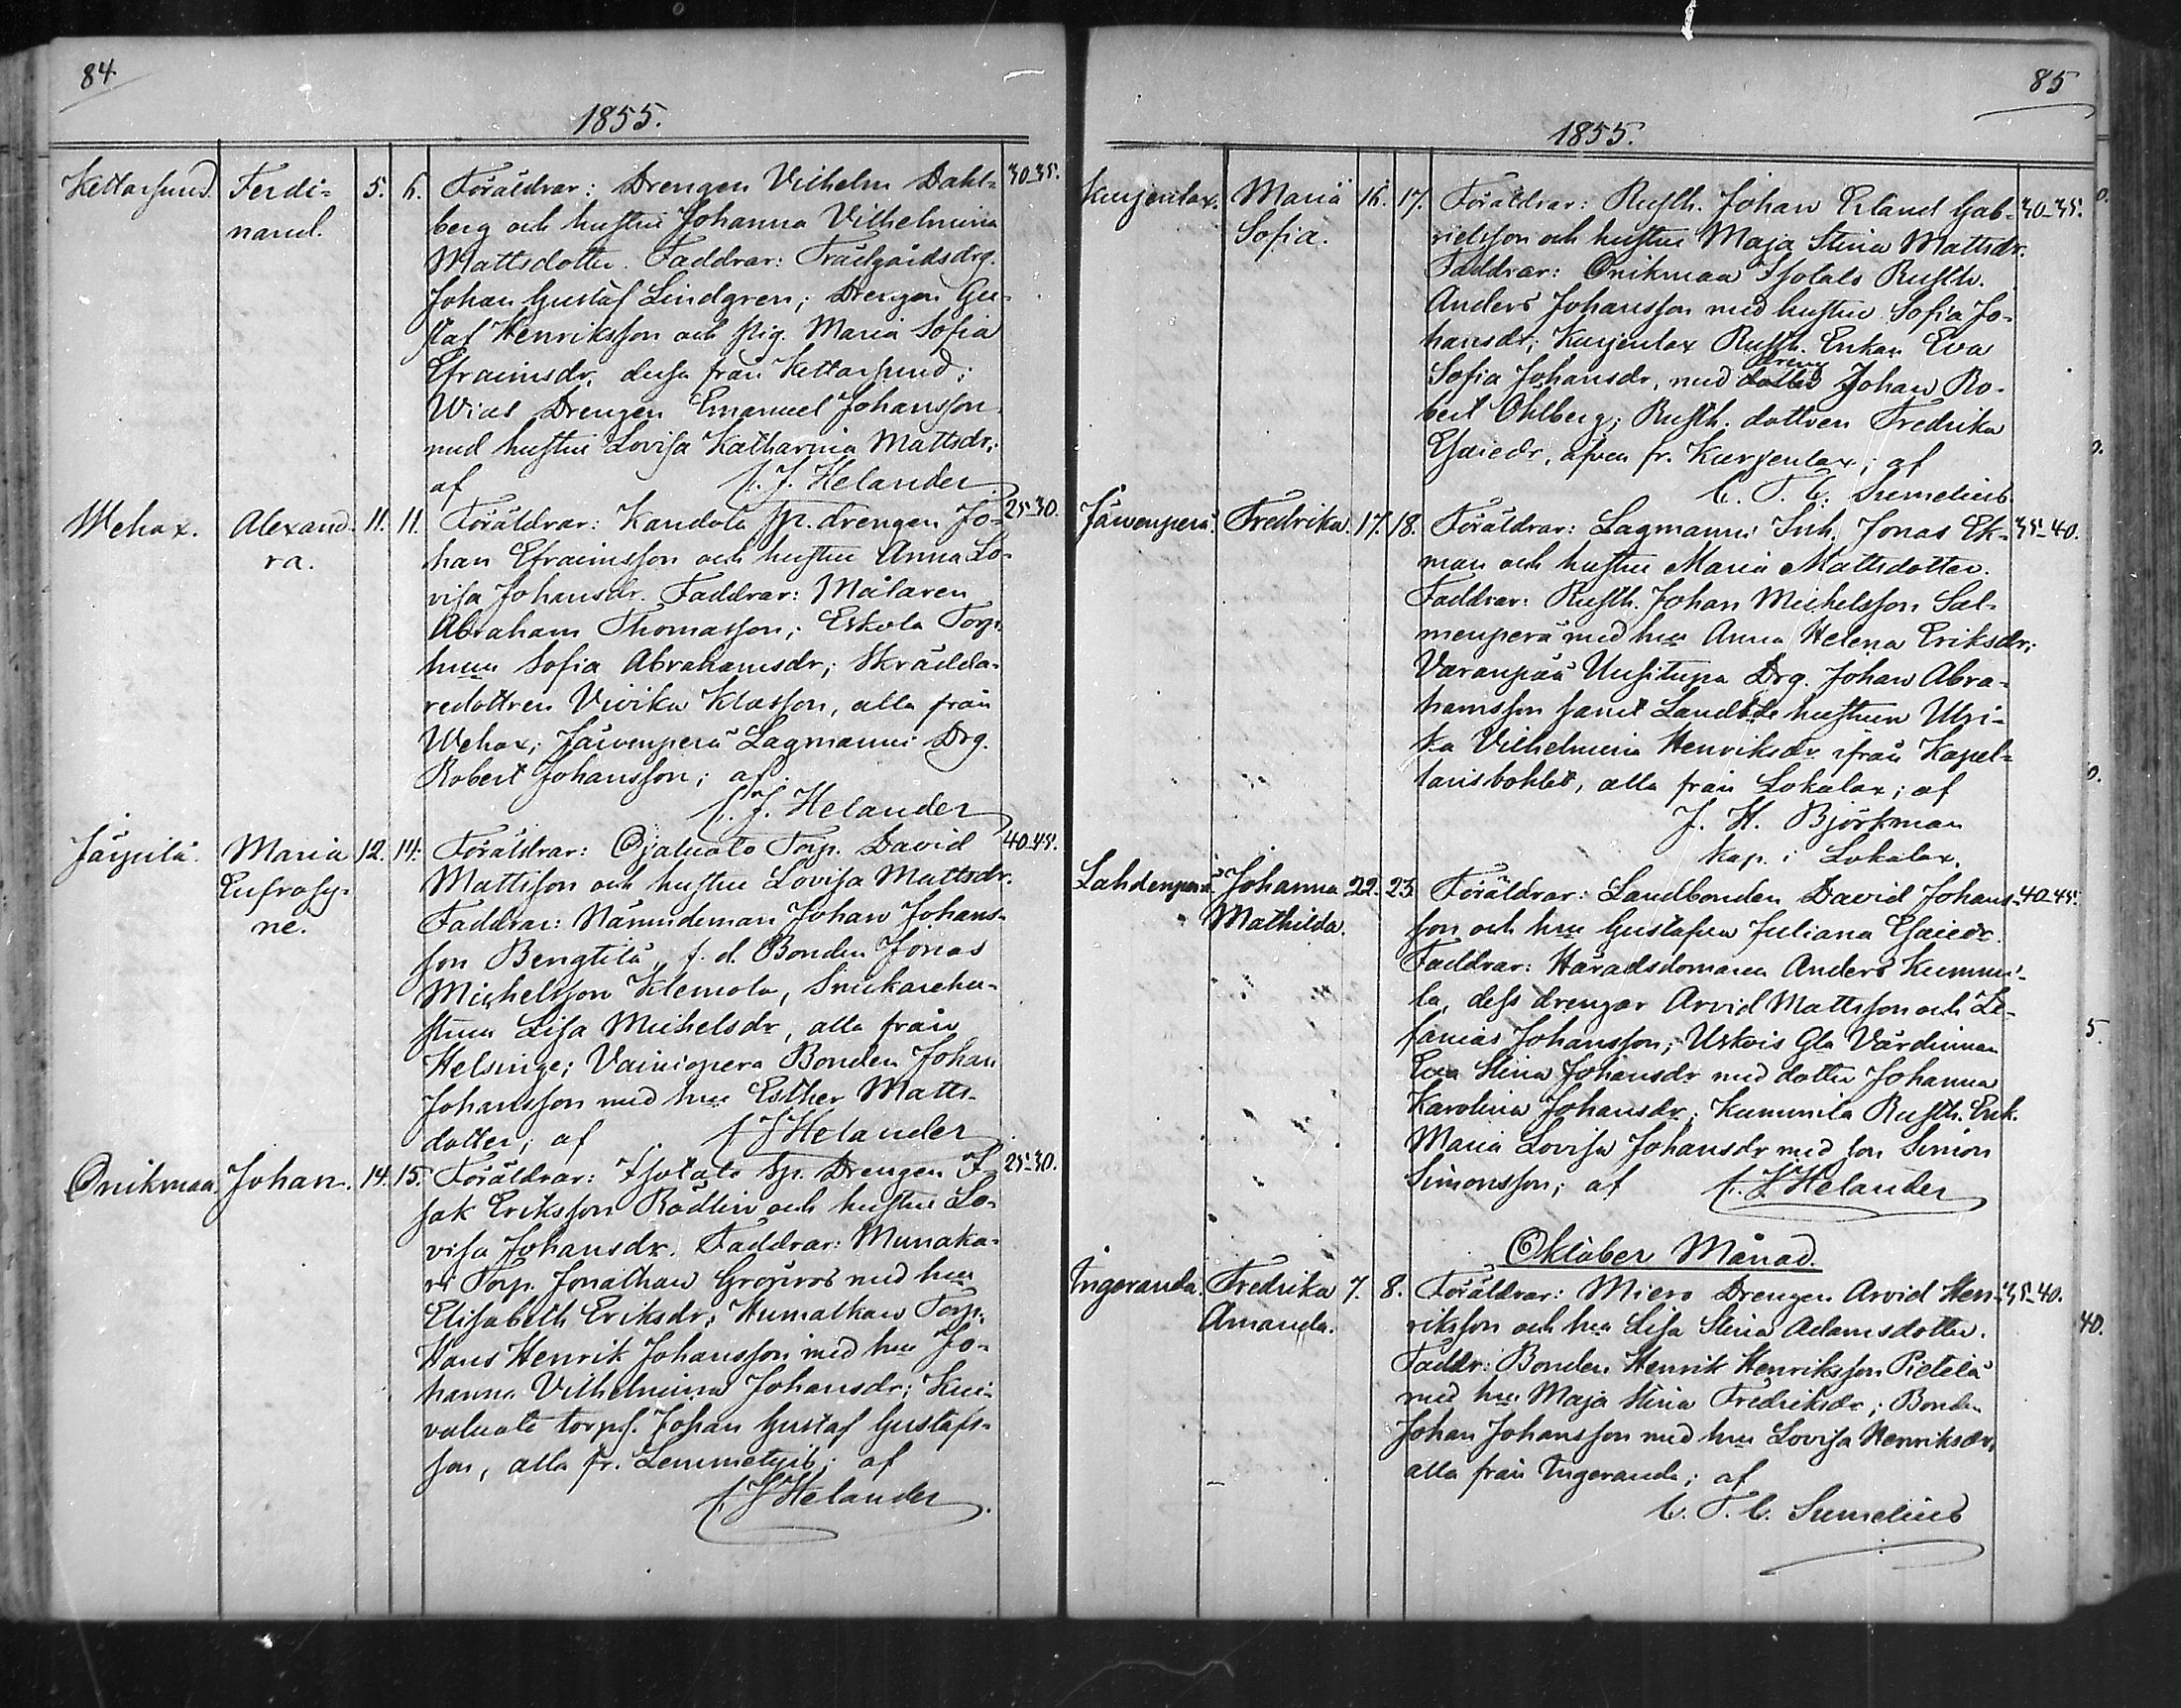 84
1855.
Kettarsund. Ferdi= 5. 6. Föräldrar: Drengen Vilhelm Dahl= 30-35.
nand. berg och hustru Johanna Vilhelmina
Mattsdotter. Faddrar: Trädgårdsdrg.
Johan Gustaf Lindgren; Drengen Gu-
staf Henriksson och pig. Maria Sofia
Efraimsdr, dessa från Kettarsund;
Wias Drengen Emanuel Johansson
med hustru Lovisa Katharina Mattsdr;
af J. Helander
Wehax. Alexand- 11. 11. Föräldrar: Kandola sp. drengen Jo- 25-30.
ra. han Efraimsson och hustru Anna Lo-
visa Johansdr. Faddrar: Målaren
Abraham Thomasson; Eskola Torp.
hum Sofia Abrahamsdr; Skrädda-
redottren Vivika Klasson, alla från
Wehax; Järvenperä Lagmanni Drg.
Robert Johansson; af
J. Helander
Järpilä. Maria 12. 14. Föräldrar: Ojaluoto Torp. David 40-45.
Eufrosy- Mattsson och hustru Lovisa Mattsdr.
ne. Faddrar: Nämndeman Johan Johans-
son Bengtilä, f. d. Bonden Jonas
Michelsson Klemola, Snickarehu-
strun Lisa Michelsdr, alla från
Helsinge; Vainiopera Bonden Johan
Johansson med hru Esther Matts-
dotter; af J Helander
Onikmaa. Johan. 14. 15. Föräldrar: Isotalo sp. Drengen I- 25-30.
sak Eriksson Rödlin och hustru Lo-
visa Johansdr. Faddrar: Munaka-
ri Torp. Jonathan Grönroos med hru
Elisabeth Eriksdr; Humalkaw Torp.
Hans Henrik Johansson med hru Jo-
hanna Vilhelmina Johansdr;
torps. Johan Gustaf Gustafs-
son, alla fr. Lemmetyis; af
J Helander
85
1855.
Kurjenlax. Maria 16. 17. Föräldrar: Rusth. Johan Erland Gab- 30-35.
Sofia. rielsson och hustru Maja Stina Mattsdr.
Faddrar: Onikmaa Isotalo Rusth.
Anders Johansson med hustru Sofia Jo-
hansdr; Kurjenlax Rusth. Enkan Eva
dreng
Sofia Johansdr, med dotter Johan Ro-
bert Öhlberg; Rusth. dottren Fredrika
Esaiedr, äfven fr. Kurjenlax; af
C. T. C. Sumelius.
Järvenperä. Fredrika. 17. 18. Föräldrar: Lagmanni Inh. Jonas Ek- 35-40.
man och hustru Maria Mattsdotter.
Faddrar: Rusth. Johan Michelsson Sal-
menperä med hru Anna Helena Eriksdr;
Varanpää Uusitupa Drg. Johan Abra-
hamsson samt Landbde hustrun Ulri-
ka Vilhelmina Henriksdr ifrån Kapel-
lansbohlet, alla från Lokalax; af
J. H. Björkman
Kap. i Lokalax.
Lahdenperä. Johanna 22. 23. Föräldrar: Landbonden David Johans- 40-45.
Mathilda. son och hru Gustafva Juliana Esaiedr.
Faddrar: Häradsdomaren Anders Kummi-
la, dess drengar Arvid Mattsson och Ze-
fanias Johansson; Uskois Gla Värdinnan
Eva Stina Johansdr med dotter Johanna
Karolina Johansdr; Kummila Rusth. Enk.
Maria Lovisa Johansdr med son Simon
Simonsson; af J Helander
Oktober Månad.
Ingeranda. Fredrika 7. 8. Föräldrar: Miero Drengen Arvid Hen- 35-40.
Amanda. riksson och hru Lisa Stina Adamsdotter.
Faddr: Bonden Henrik Henriksson Pietilä
med hru Maja Stina Fredriksdr; Bonden
Johan Johansson med hru Lovisa Henriksdr,
alla från Ingeranda; af
C. T. C. Sumelius
0.
0.
0.
5.
40.